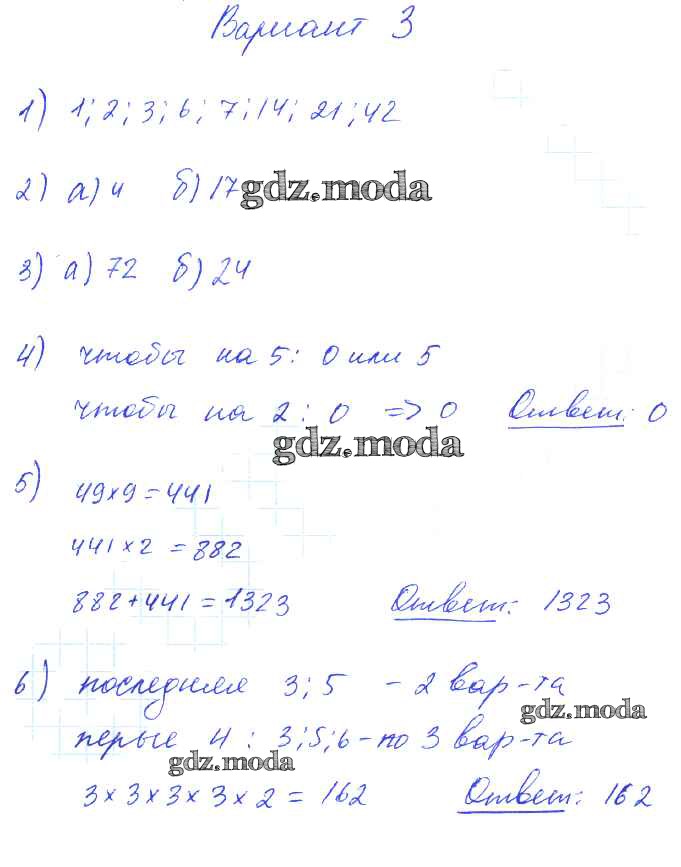 Вариант 3
1) 1; 2; 3; 6; 7; 14; 21; 42
2) а) 4 б) 17
gdz.moda
3) а) 72 б) 24
4) чтобы на 5: 0 или 5
чтобы на 2: 0 => 0 Ответ: 0
gdz.moda
5) 49×9=441
441×2 = 882
882+441=1323 Ответ: 1323
6) последняя 3; 5 - 2 вар-та
gdz.moda
перые 4: 3;5;6 - по 3 вар-та
gdz.moda
3×3×3×3×2 = 162 Ответ: 162